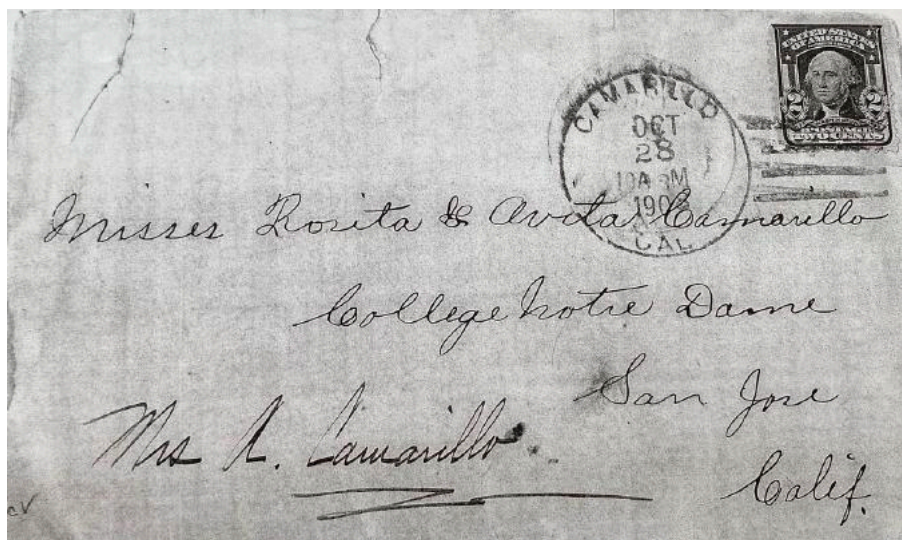 UNITED STATES
OF AMERICA
2 2
TWO CENTS
CAMARILLO
OCT
28
10 A M
CAL
Misses Rosita & Avita Camarillo
College Notre Dame
San Jose
Calif.
Mrs A. Camarillo